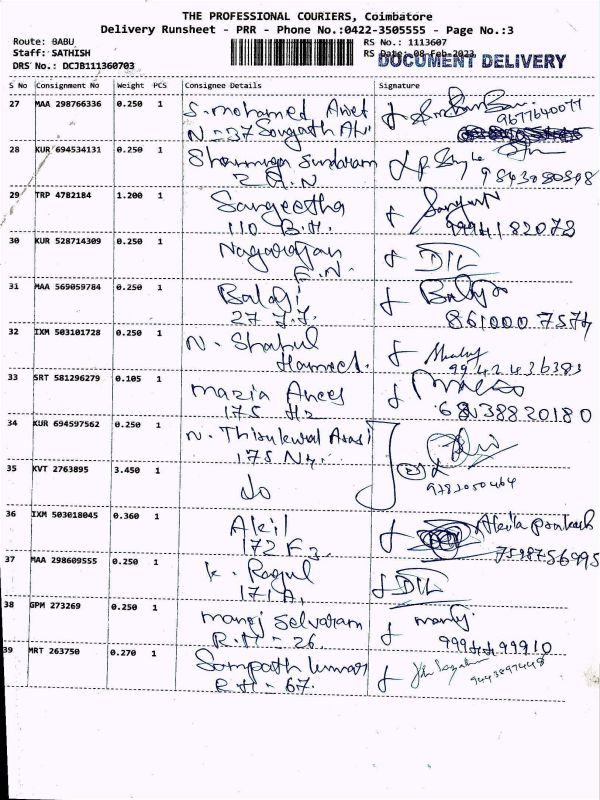 THE PROFESSIONAL COURIERS, Coimbatore
Delivery Runsheet - PRR - Phone No.:0422-3505555 - Page No.:3
Route: BABU
RS No.: 1113607
Staff: SATHISH
RS Date: 08-Feb-2023
DOCUMENT DELIVERY
DRS No.: DCJB111360703
S No Consignment No Weight PCS Consignee Details Signature
27 MAA 298766336 0.250 1 S. mohamed
9677640077
N - 37
28 KUR 694534131 0.250 1 Shanmuga Sundaram
29 TRP 4782184 1.200 1 Sangeetha
110 B.H. 9994182073
30 KUR 528714309 0.250 1 Nagarajan DIL
F.N.
31 MAA 569059784 0.250 1 Balaji Balaji
27 J.J. 861000 7574
32 IXM 503101728 0.250 1 N. Shahul
Hameed. 9942436383
33 SRT 581296279 0.105 1 mazia Anees
175 H2 6383820180
34 KUR 694597562 0.250 1 N.
175 N4.
35 KVT 2763895 3.450 1 do
36 IXM 503018045 0.360 1 Akil Akila prakash
172 F3. 7598756995
37 MAA 298609555 0.250 1 K. Ragul DIL
171 A.
38 GPM 273269 0.250 1 manoj Selvaram
R.H - 26. 9994499910
39 MRT 263750 0.270 1 Sampath kumar
R.H - 67. 9443897448